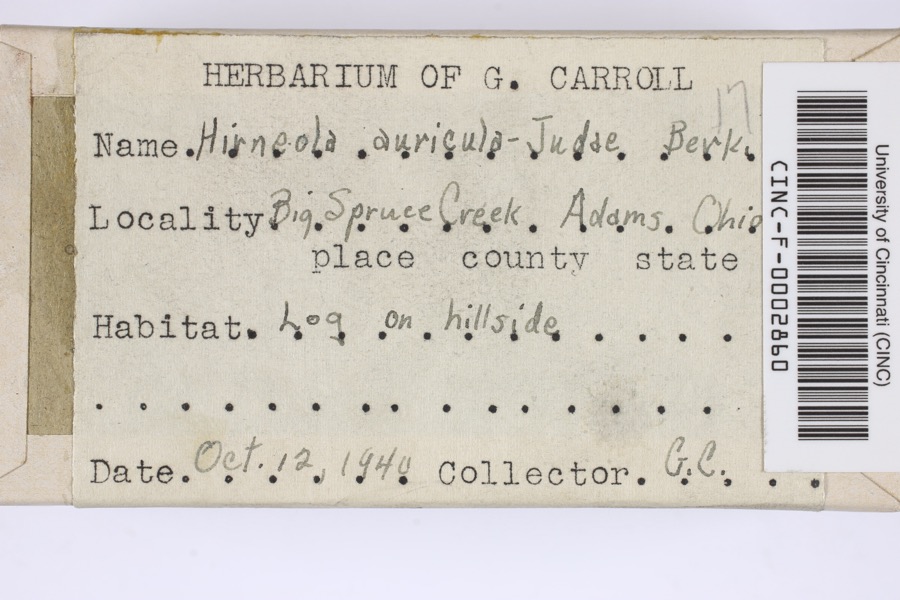 HERBARIUM OF G. CARROLL
17
Name. Hirneola auricula-Judae Berk.
Locality Big Spruce Creek. Adams. Ohio
place county state
Habitat. Log on hillside
Date. Oct. 12, 1940 Collector. G.C.
CINC-F-0002860
University of Cincinnati (CINC)